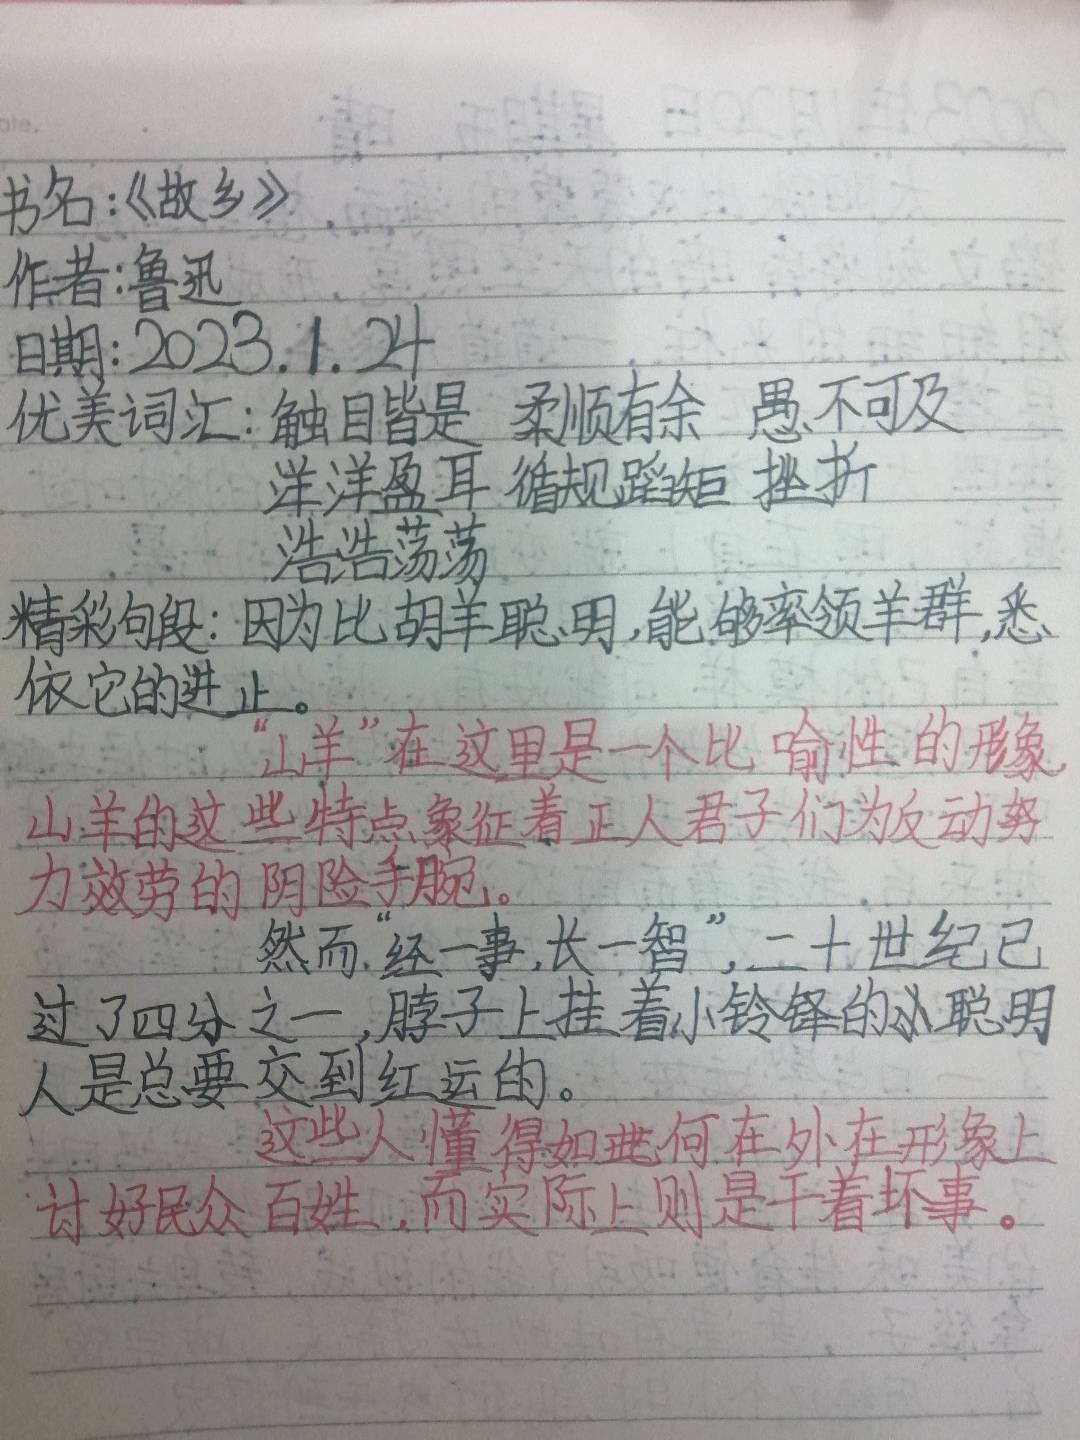 书名:《故乡》
作者:鲁迅
日期:2023.1.24
优美词汇:触目皆是 柔顺有余 愚不可及
洋洋盈耳 循规蹈矩 挫折
浩浩荡荡
精彩句段:因为比胡羊聪明,能够率领羊群,悉
依它的进止。
“山羊”在这里是一个比喻性的形象
山羊的这些特点象征着正人君子们为反动势
力效劳的阴险手腕。
然而“经一事,长一智”,二十世纪已
过了四分之一,脖子上挂着小铃铎的小聪明
人是总要交到红运的。
这些人懂得如何在外在形象上
讨好民众百姓,而实际上则是干着坏事。